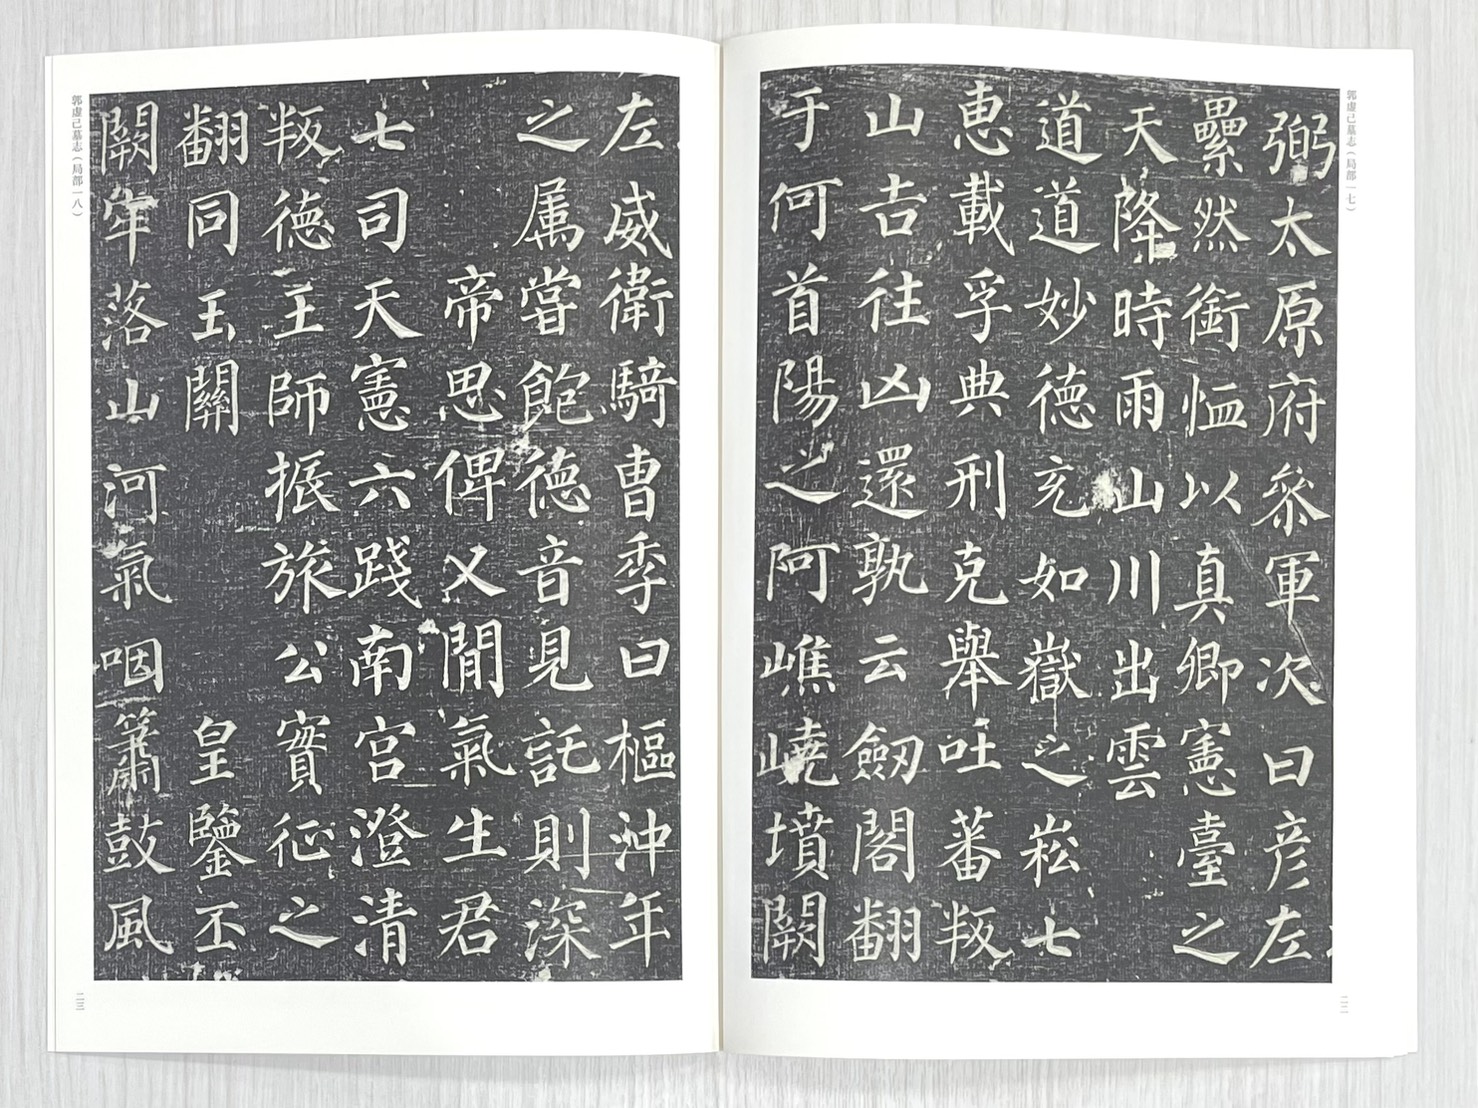 郭虚己墓志（局部一七）
弼太原府叅軍次曰彦左
纍然銜恤以真卿憲臺之
天降時雨山川出雲
道道妙德充如嶽之崧七
惠載孚典刑克舉吐蕃叛
山吉往凶還孰云劒閣翻
于何首陽之阿嶕嶢墳闕
二二
左威衛騎曹季曰樞沖年
之属嘗飽德音見託則深
帝思俾乂閒氣生君
七司天憲六踐南宮澄清
叛德王師振旅公實征之
翻同玉關 皇鑒丕
闕牢落山河氣咽簫鼓風
郭虚己墓志（局部一八）
二三